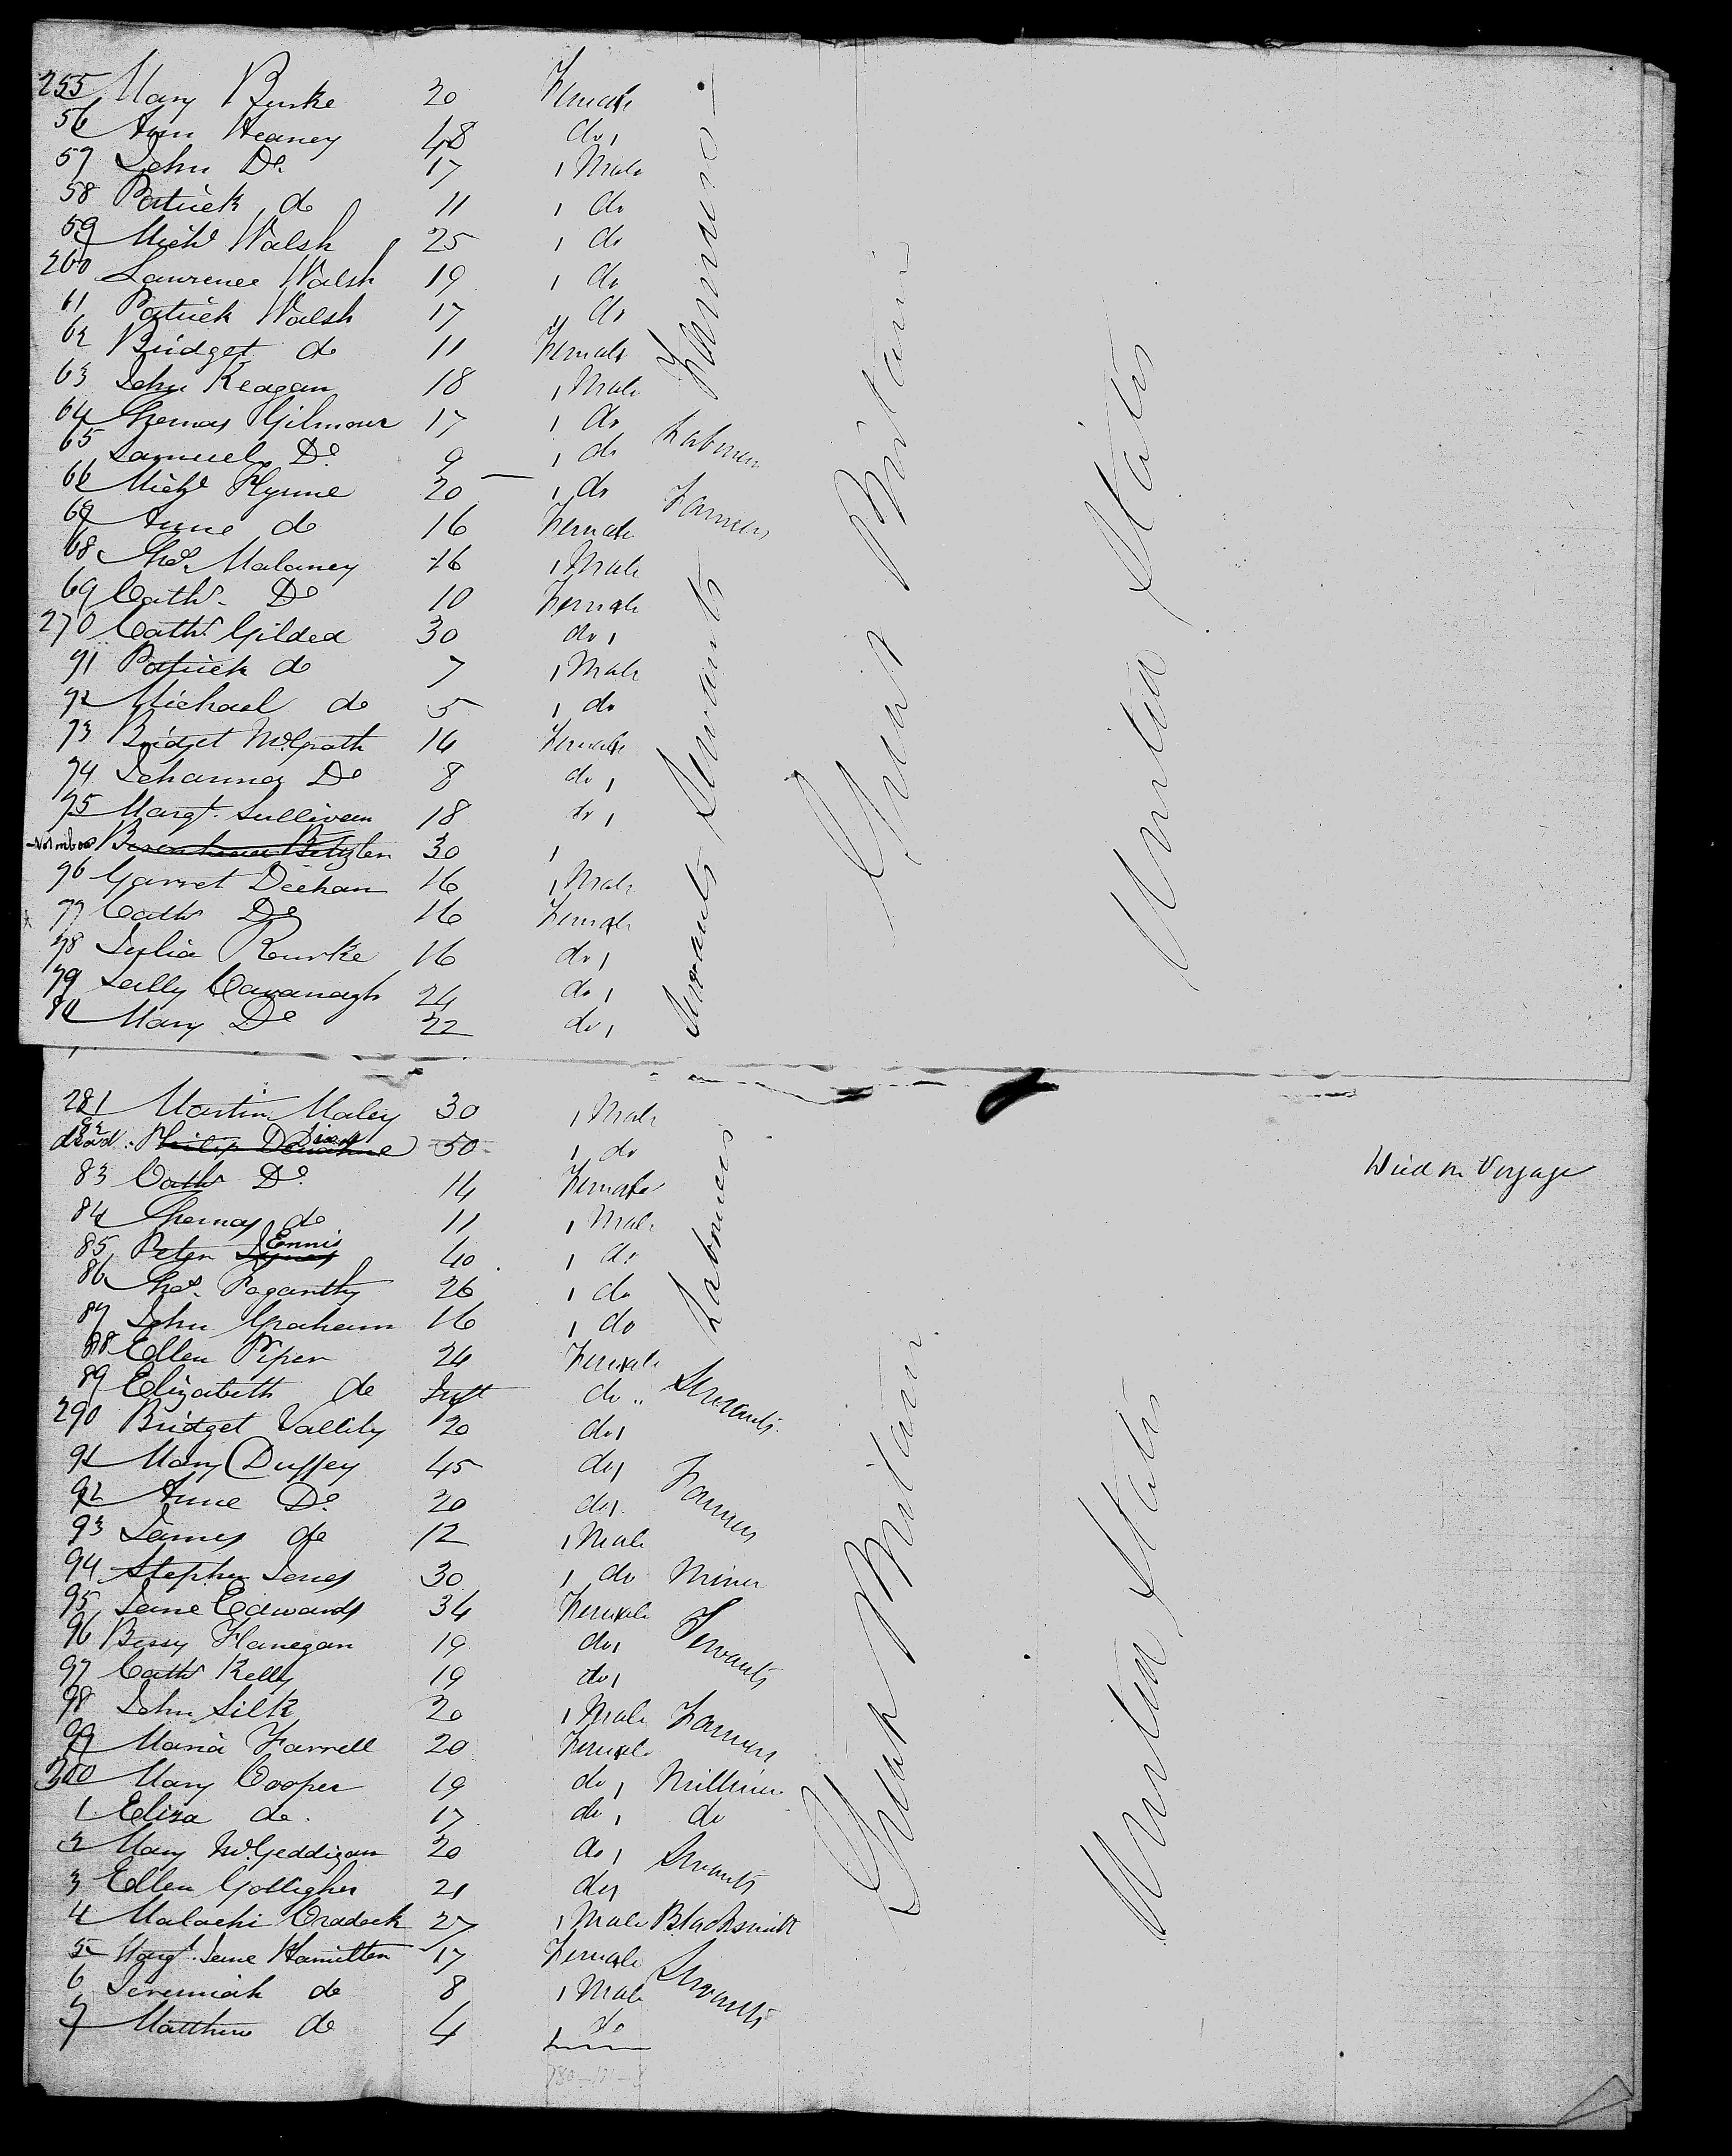 255 Mary Burke 20 Female
56 Ann Heaney 48 do
57 John Do 17 Male
58 Patrick do 11 do
59 Michl Walsh 25 do
260 Lawrence Walsh 19 do
61 Patrick Walsh 17 do
62 Bridget do 11 Female
63 John Keagan 18 Male
64 Thomas Gilmour 17 do Labourers
65 Samuel Do 9 do
66 Michl Flynne 20 do Farmers
67 Anne do 16 Female
68 Thos. Malaney 16 Male
69 Cathe Do 10 Female
270 Cathe Gildea 30 do
71 Patrick do 7 Male
72 Michael do 5 do
73 Bridget McGrath 14 Female
74 Johanna Do 8 do
75 Margt. Sullivan 18 do
30
76 Garret Deehan 16 Male
77 Cathe Do 16 Female
78 Julia Rourke 16 do
79 Sally Cavanagh 24 do
80 Mary Do 22 do
Servants Servants Farmers
Great Britain
United States
281 Martin Maley 30 Male
82 dead Philip 50 do Died on Voyage
83 Cathe Do 14 Female
84 Thomas do 11 Male
85 Peter Ennis 40 do
86 Thos. Pogarthy 26 do
87 John Graham 16 do
88 Ellen Piper 24 Female
89 Elizabeth do Inft do Servants
290 Bridget Vallily 20 do
91 Mary Duffey 45 do Farmers
92 Anne Do 20 do
93 James do 12 Male
94 Stephen Jones 30 do Miner
95 Jane Edwards 34 Female Servants
96 Bessy Flanegan 19 do
97 Cathe Kelly 19 do
98 John Silk 20 Male Farmers
99 Maria Farrell 20 Female
300 Mary Cooper 19 do Milliner
1 Eliza do 17 do do
2 Mary McGeddigan 20 do Servants
3 Ellen Golligher 21 do
4 Malachi Cradock 27 Male Blacksmith
5 Margt. Jane Hamilton 17 Female Servants
6 Jeremiah do 8 Male
7 Matthew do 4 do
Labourers
Great Britain
United States